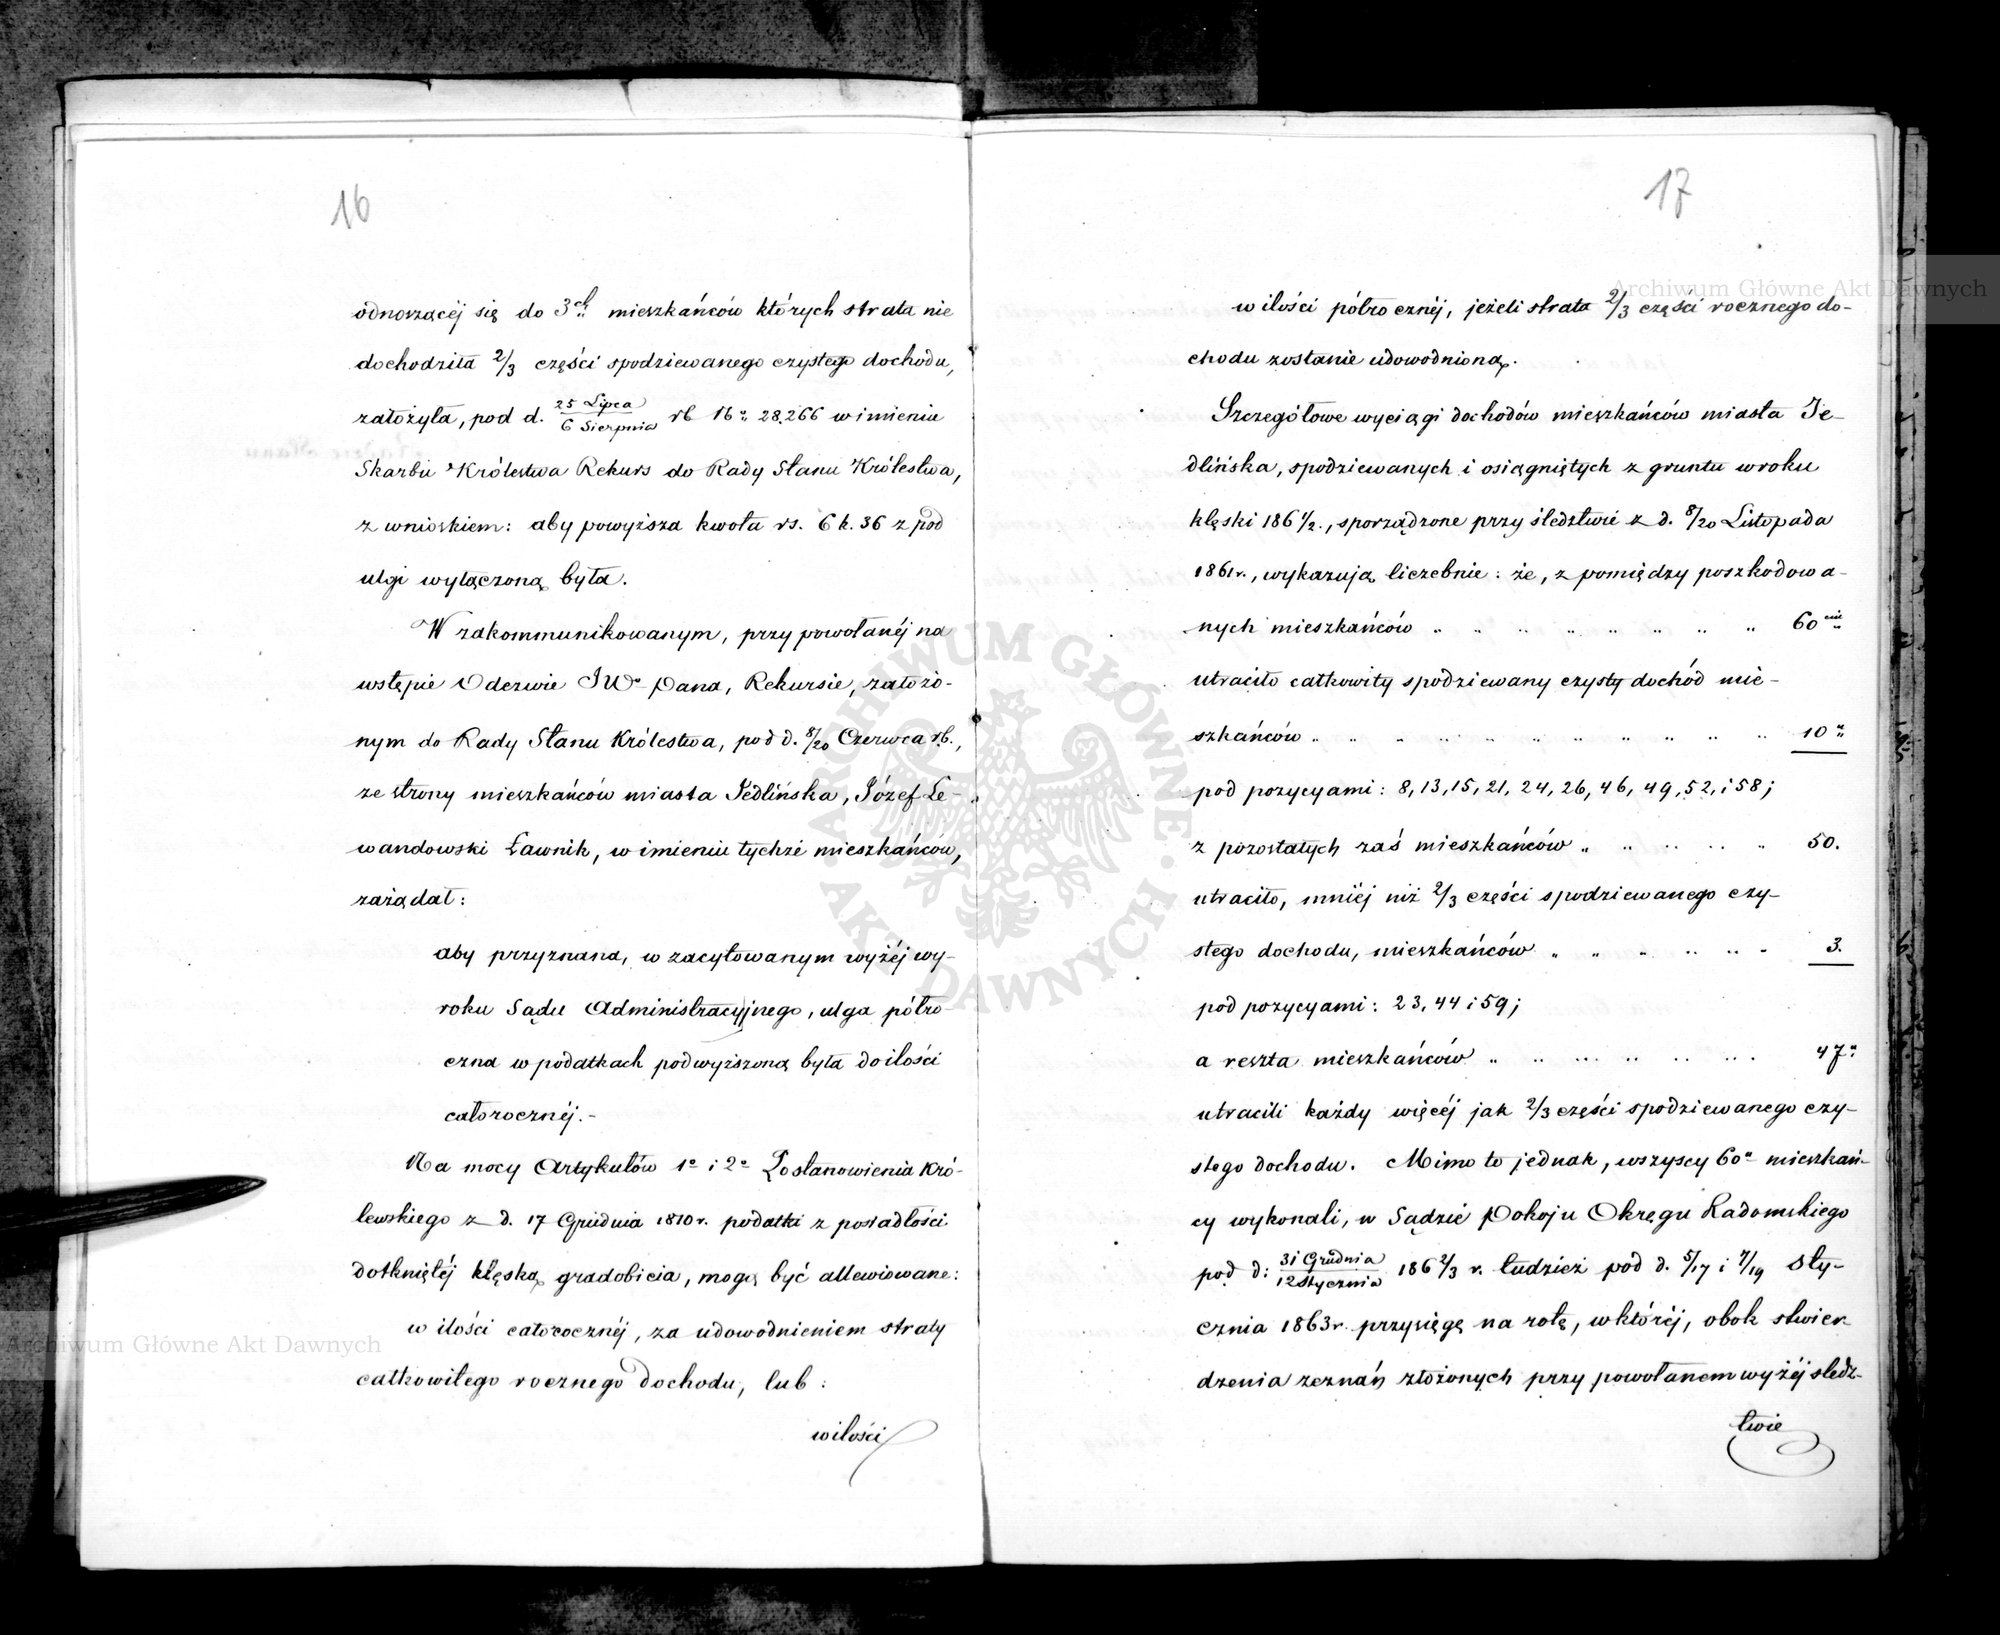 16
odnoszącéj się do 3ch mieszkańców których strata nie
dochodziła 2/3 części spodziewanego czystego dochodu,
założyła, pod d. 25 Lipca / 6 Sierpnia rb 16" 28.266 w imieniu
Skarbu Królestwa Rekurs do Rady Stanu Królestwa,
z wnioskiem: aby powyższa kwota rs. 6 k. 36 z pod
ulgi wyłączoną była.
W zakommunikowanym, przy powołanéj na
wstępie Odezwie JWo Pana, Rekursie, założo-
nym do Rady Stanu Królestwa, pod d. 8/20 Czerwca rb.,
ze strony mieszkańców miasta Jedlińska, Józef Le-
wandowski Ławnik, w imieniu tychże mieszkańców,
zażądał:
aby przyznana, w zacytowanym wyżéj wy-
roku Sądu Administracyjnego, ulga półro-
czna w podatkach podwyższoną była do ilości
całorocznéj.-
Na mocy Artykułów 1o i 2o Postanowienia Kró-
lewskiego z d. 17 Grudnia 1810 r. podatki z posiadłości
dotkniętéj klęską gradobicia, mogą być allewiowane:
w ilości całorocznéj, za udowodnieniem straty
całkowitego rocznego dochodu, lub:
w ilości
17
w ilości półrocznéj, jeżeli strata 2/3 części rocznego do-
chodu zostanie udowodnioną.
Szczegółowe wyciągi dochodów mieszkańców miasta Je-
dlińska, spodziewanych i osiągniętych z gruntu w roku
klęski 186 1/2., sporządzone przy śledztwie z d. 8/20 Listopada
1861 r., wykazują liczebnie: że, z pomiędzy poszkodowa-
nych mieszkańców " " " " " " " " 60ciu
utraciło całkowity spodziewany czysty dochód mie-
szkańców " " " " " " " " " " " 10"
pod pozycyami: 8, 13, 15, 21, 24, 26, 46, 49, 52, i 58;
z pozostałych zaś mieszkańców " " " " " 50.
utraciło, mniéj niż 2/3 części spodziewanego czy-
stego dochodu, mieszkańców " " " " " " 3.
pod pozycyami: 23, 44 i 59;
a reszta mieszkańców " " " " " " " 47"
utracili każdy więcéj jak 2/3 części spodziewanego czy-
stego dochodu. Mimo to jednak, wszyscy 60u mieszkań-
cy wykonali, w Sądzie Pokoju Okręgu Radomskiego
pod d: 31 Grudnia / 12 Stycznia 186 2/3 r. tudzież pod d. 5/17 i 7/19 Sty-
cznia 1863 r. przysięgę na rotę, w któréj, obok stwier
dzenia zeznań złożonych przy powołanem wyżéj śledz-
twie
Archiwum Główne Akt Dawnych
Archiwum Główne Akt Dawnych
ARCHIWUM GŁÓWNE · AKT DAWNYCH ·